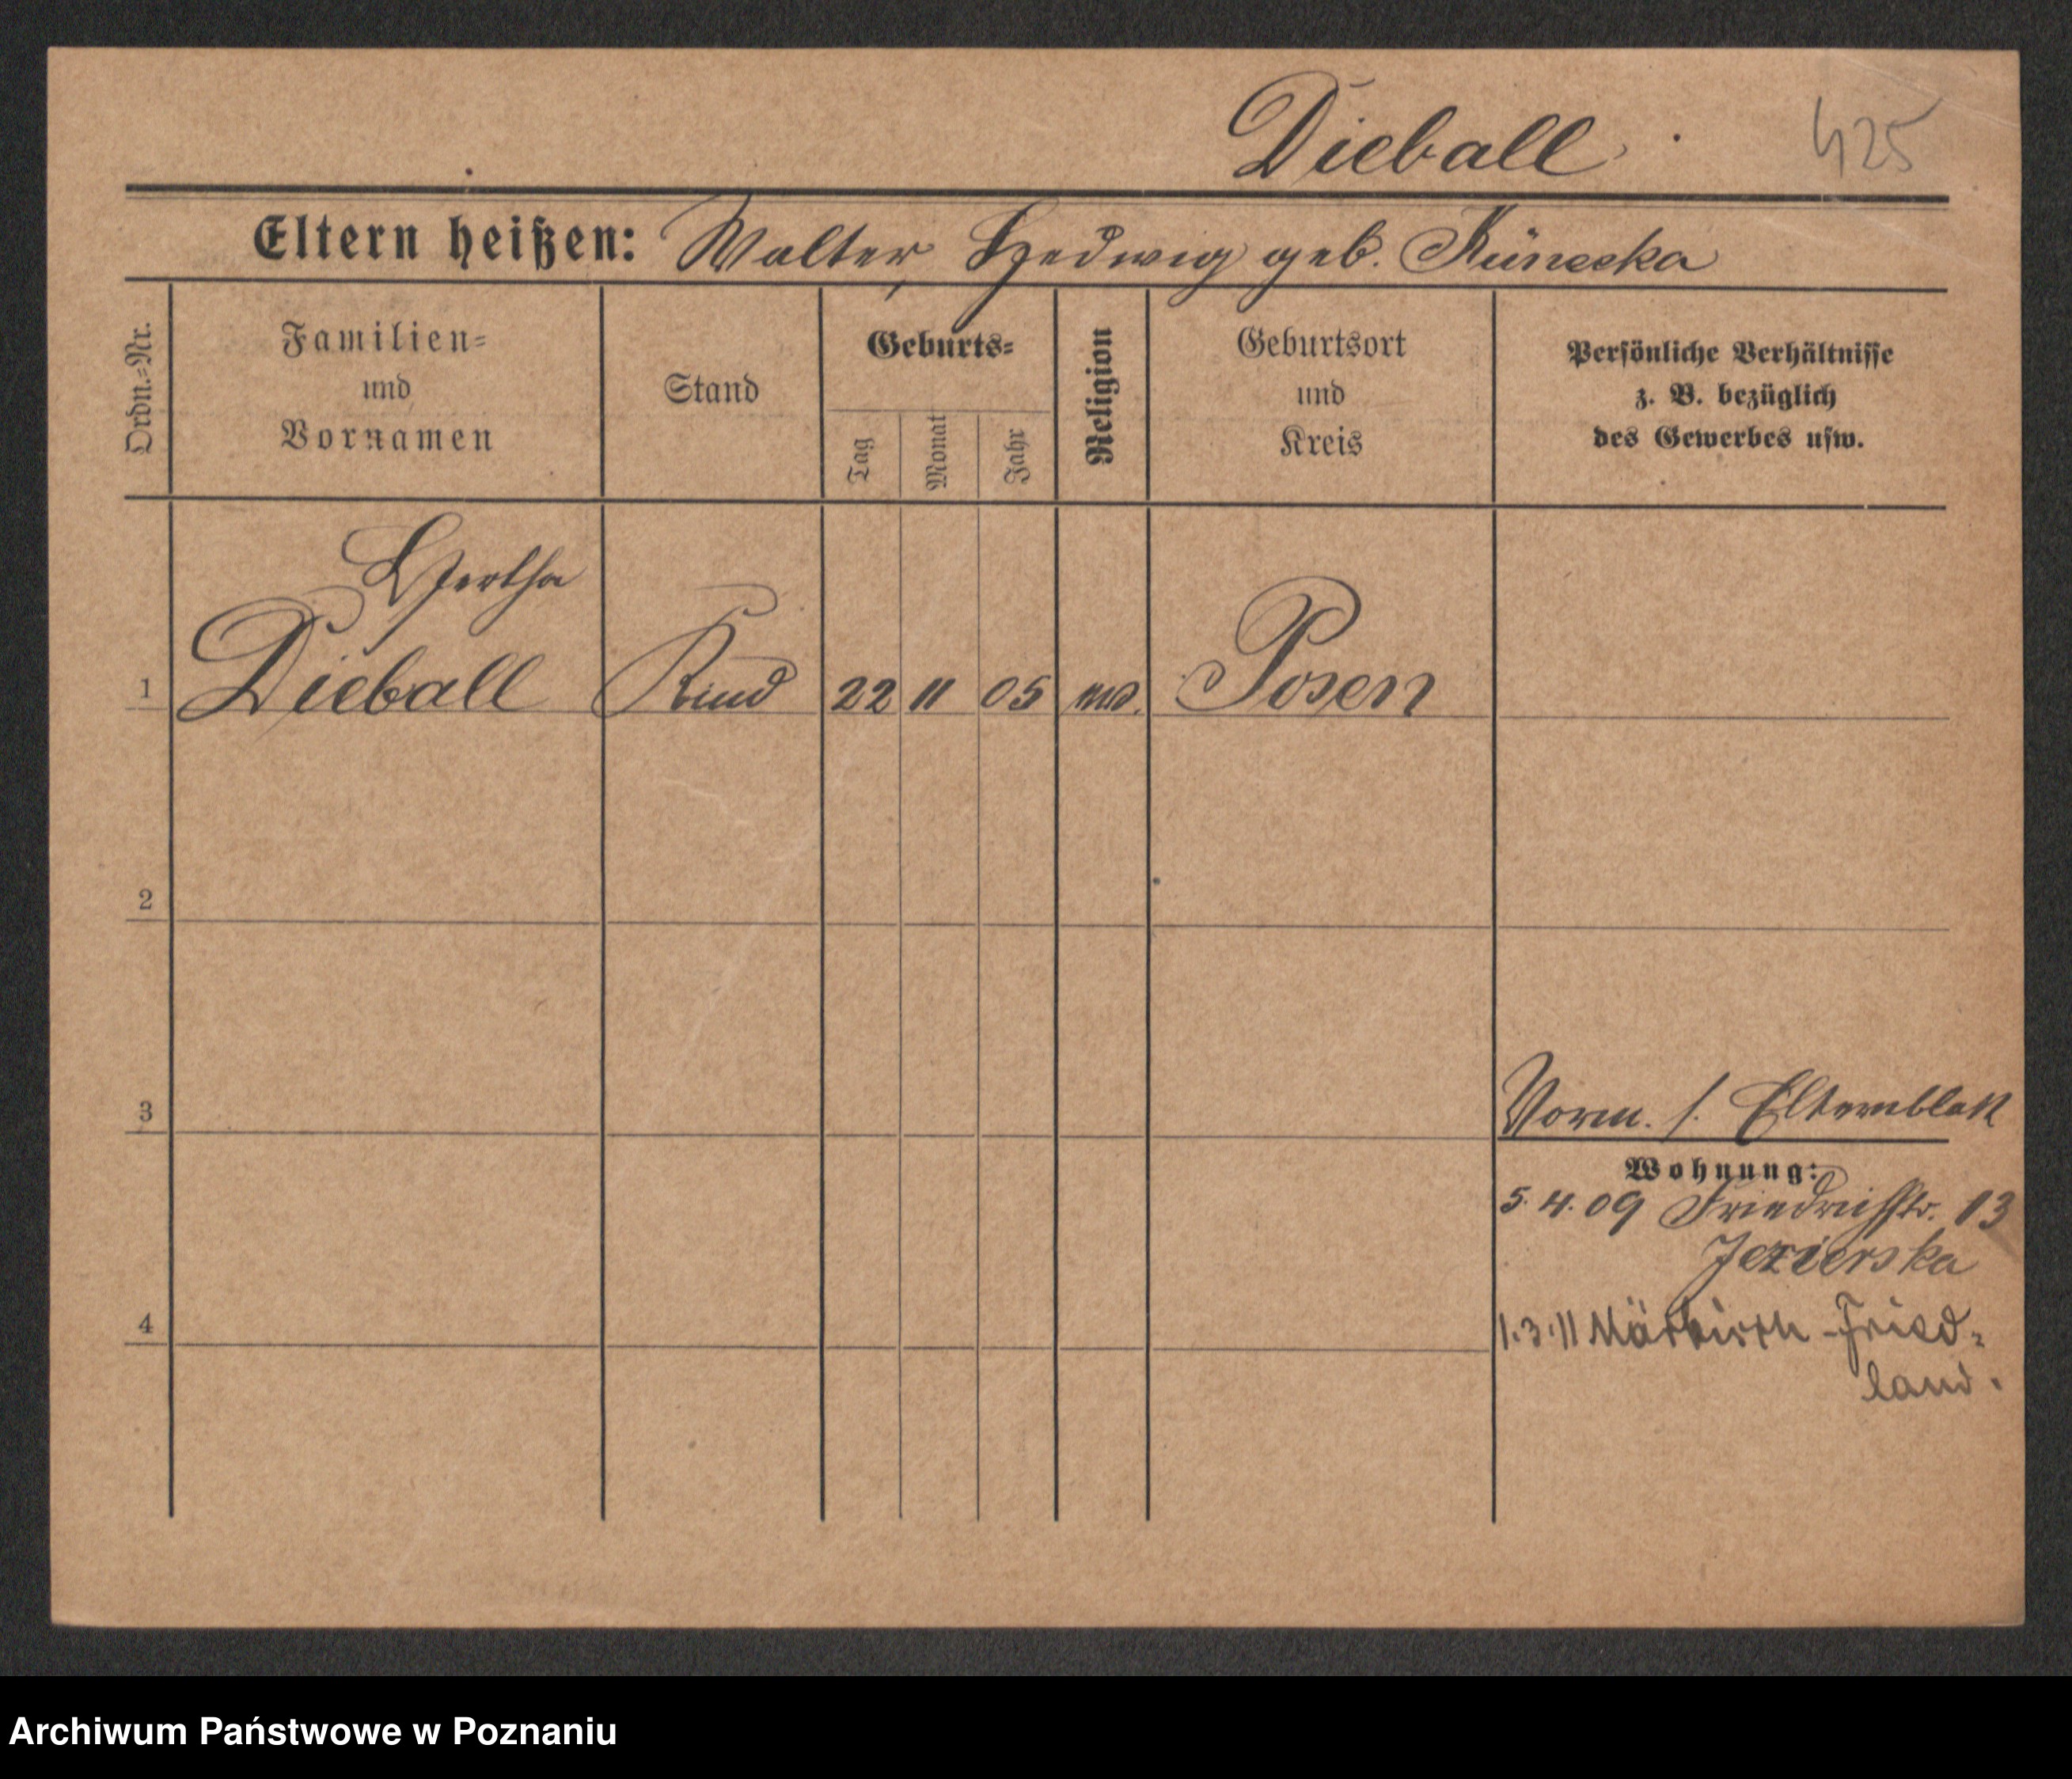 Dieball
425
Eltern heißen: Walter, Hedwig geb. Künecka
Ordn.=Nr.
Familien=
und
Vornamen
Stand
Geburts=
Tag
Monat
Jahr
Religion
Geburtsort
und
Kreis
Persönliche Verhältnisse
z. B. bezüglich
des Gewerbes usw.
Hertha
1 Dieball Kind 22 11 05 Posen
2
3
Vorm. s. Elternblatt
Wohnung:
5.4.09 Friedrichstr. 13
Jezierska
4
1.3.11 Märkisch-Fried=
land.
Archiwum Państwowe w Poznaniu